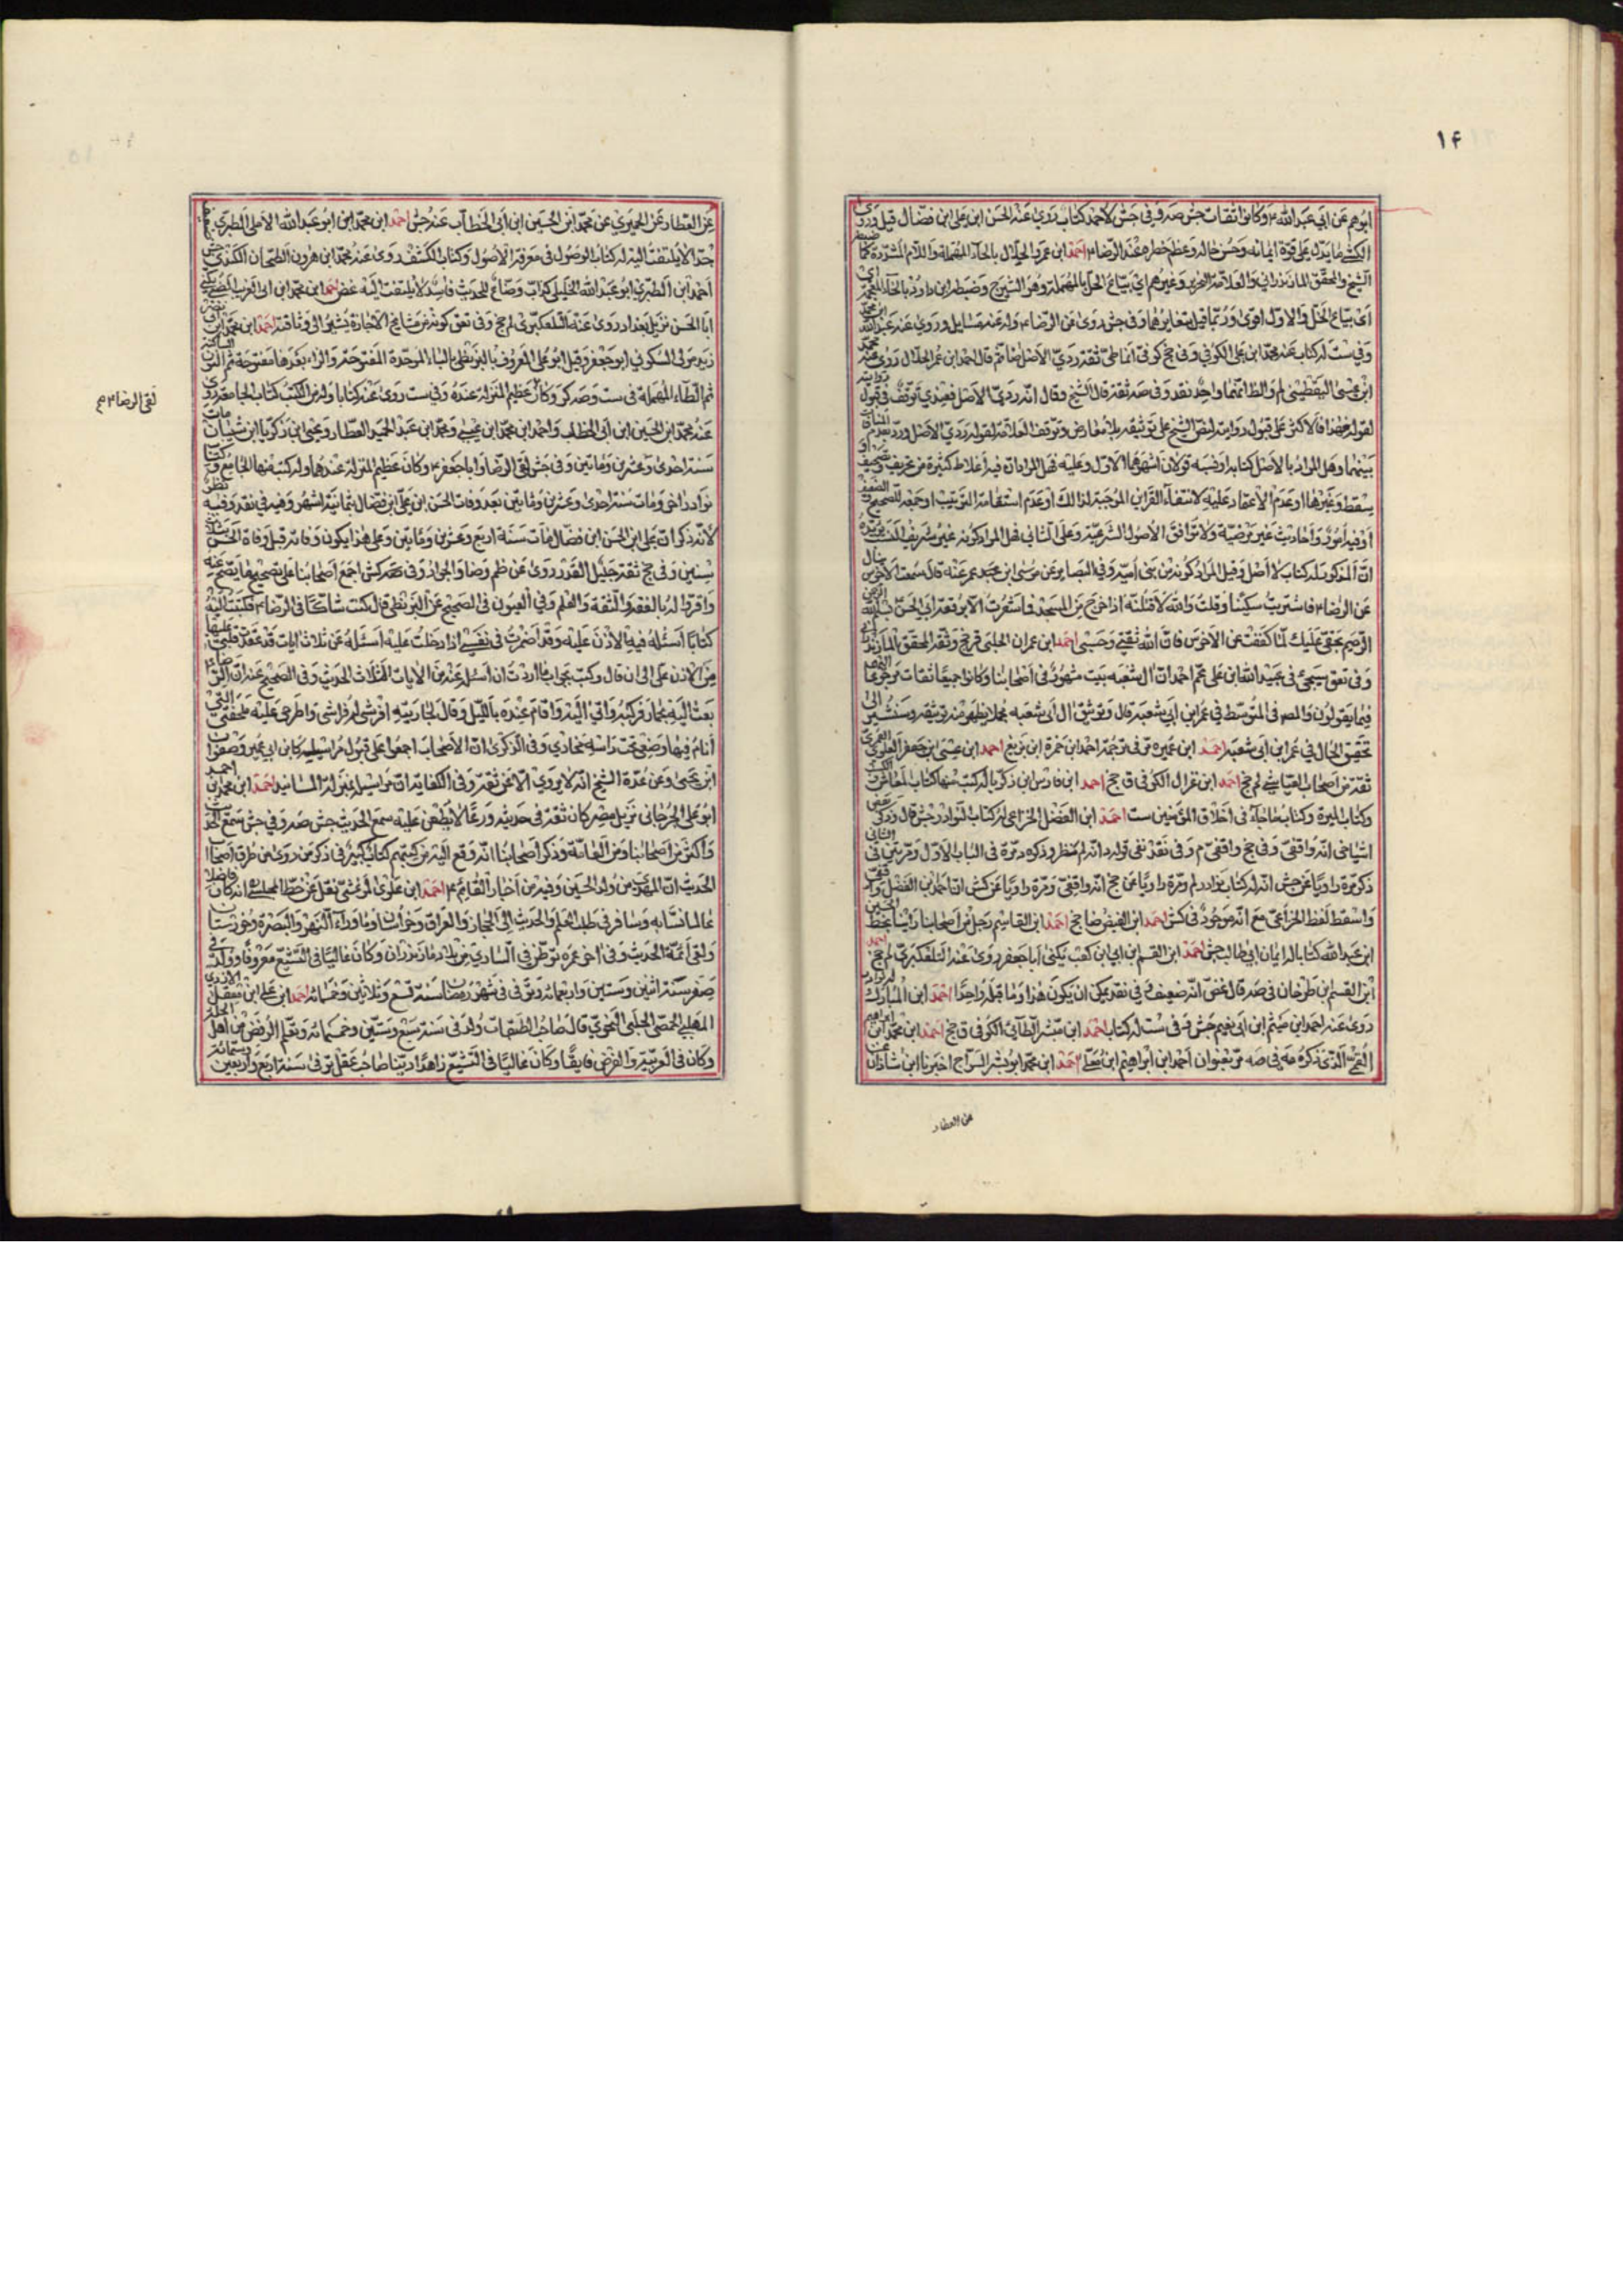 ١٤
ابوهم عن ابي عبد الله ع وكانوا ثقات جش صه وفي جش لاحمد كتاب روى عنه الحسن ابن على ابن فضال قيل وروى
الكشي ما يدل على قوة ايمانه وحسن حاله وعظم خطره عند الرضا ع احمد ابن عمر الحلال بالحاء المهملة واللام المشددة كما
الشيخ والمحقق المازندراني والعلامة وغيرهم اي بياع الحل بالمهملة وهو الشيرج وضبطه ابن داود بالخاء المعجمة
اى بياع الخل والاول اقوى وربما قيل بتغايرهما وفي جش روى عن الرضا ع وله عنه مسايل وروى عنه عبد الله
وفي ست له كتاب عنه محمد ابن على الكوفي وفي جخ كوفي انماطي ثقة ردي الاصل ثم قال احمد ابن عمر الحلال روى عنه
ابن عيسى اليقطيني لم والظ انهما واحد نقد وفي صه ثقة قال الشيخ وقال انه ردي الاصل فعندي توقف في قبول
لقوله هذا فالاكثر على قبول روايته لنص الشيخ على توثيقه بلا معارض وتوقف العلامة لقوله ردي الاصل
بينهما وهل المراد بالاصل كتابه او نسبه قولان اشهرهما الاول وعليه فهل المراد ان فيه اغلاط كثيرة من تحريف وتصحيف
وسقط وغيرها او عدم الاعتماد عليه لانتفاء القراين الموجبة لذلك او عدم استقامة الترتيب او جمعه للصحيح والضعيف
او فيه امور واحاديث غير مرضية ولا توافق الاصول الشرعية وعلى الثاني فهل المراد كونه غير شريف النسب
ان المذكور له كتاب لا اصل وقيل المراد كونه من بني امية وفي البصاير عن موسى ابن عمر عنه قال سمعت الاخرس
عن الرضا ع فاشتريت سكينا وقلت والله لاقتلنه اذا خرج من المسجد فما شعرت الا برقعة ابي الحسن بسم الله
الرحيم بحقي عليك لما كففت عن الاخرس فان الله ثقتي وحسبي احمد ابن عمران الحلبي ق جخ وثقه المحقق
وفي تعق سيجيء في عبيد الله ابن على عم احمد ان آل شعبه بيت مشهور في اصحابنا وكانوا جميعا ثقات مرجوعا
فيما يقولون في المتوسط في عمر ابن ابي شعبة قال وتوثيق آل ابي شعبه مجملا يظهر منه توثيقه وسنشير الى
تحقيق الحال في عمر ابن ابي شعبه احمد ابن عميره مر في ترجمة احمد ابن حمزة ابن بزيع احمد ابن عيسى ابن جعفر العلوى العمرى
ثقة من اصحاب العياشي لم جخ احمد ابن غزال الكوفي ق جخ احمد ابن فارس ابن زكريا له كتب منها كتاب المعاش
وكتاب الميرة وكتاب ما جاء في اخلاق المؤمنين ست احمد ابن الفضل الخزاعي له كتاب النوادر جش قال وذكر
اشياخي انه واقفي وفي جخ واقفي م وفي نقد
ذكر مرة راويا عن جش انه له كتاب نوادر ومرة راويا عن جخ انه واقفي ومرة راويا عن كش ان احمد ابن الفضل واقفي
واسقط لفظ الخزاعي مع انه موجود في كش احمد ابن الفيض ضا جخ احمد ابن القاسم رجل من اصحابنا راينا بخط الحسين
ابن عبيد الله كتابا له ايمان ابي طالب جش احمد ابن القسم ابن ابي ابن كعب يكنى ابا جعفر روى عنه التلعكبري لم جخ احمد
ابن القسم ابن طرخان في صه قال غض انه ضعيف وفي نقد يمكن ان يكون هذا وما قبله واحدا احمد ابن المبارك له نوادر
روى عنه احمد ابن ميثم ابن ابي نعيم جش وفي ست له كتاب احمد ابن مبشر الطائي الكوفي ق جخ احمد ابن محمد ابن ابراهيم
الذي ذكره مه في صه مر بعنوان احمد ابن ابراهيم ابن معلى احمد ابن محمد ابو بشر السراج اخبرنا ابن شاذان
عن العطار
عن العطار عن الحميري عن محمد ابن الحسين ابن ابي الخطاب عنه جش احمد ابن محمد ابن ابو عبد الله الاملي الطبري
جدا لا يلتفت اليه له كتاب الوصول الى معرفة الاصول وكتاب الكشف روى عنه محمد ابن هرون الطحان الكندي جش
احمد ابن الطبري ابو عبد الله الخليلي كذاب وضاع للحديث فاسد لا يلتفت اليه غض احمد ابن محمد ابن ابي الغريب الضبي يكنى
ابا الحسن نزيل بغداد روى عنه التلعكبرى لم جخ وفي تعق كونه من مشايخ الاجازة يشير الى وثاقته احمد ابن محمد ابن ابي نصر
زيد مولى السكوني ابو جعفر وقيل ابو على المعروف بالبزنطي بالباء الموحدة المفتوحة والزاء بعدها مفتوحة ثم النون الساكنة
ثم الطاء المهملة في ست وصه كوفي وكان عظيم المنزلة عنده وفي ست روى عنه كتابا وله من الكتب كتاب الجامع روى
عنه محمد ابن الحسين ابن ابي الخطاب واحمد ابن محمد ابن عيسى ومحمد ابن عبد الحميد العطار ويحيى ابن زكريا ابن شيبان مات
سنة احدى وعشرين ومائتين وفي جش لقى الرضا وابا جعفر ع وكان عظيم المنزلة عندهما وله كتب منها الجامع وكتاب
نوادر اخر ومات سنة احدى وعشرين ومائتين بعد وفات الحسن ابن على ابن فضال بثمانية اشهر وفيه نظر
لانه ذكر ان على ابن الحسن ابن فضال مات سنة اربع وعشرين ومايتين وعلى هذا يكون وفاته قبل وفاة الحسن بثلاث
سنين وفي جخ ثقة جليل القدر روى عن ظم وضا والجواد وفي صه كش اجمع اصحابنا على تصحيح ما يصح عنه
واقروا له بالفقه والثقة والعلم وفي العيون في الصحيح عن البزنطي قال كنت شاكا في الرضا ع فكتبت اليه
كتابا اسئله فيه الاذن عليه وقد اضمرت في نفسي اذا دخلت عليه اسئله عن ثلاث ايات قد عقدت قلبي عليها
من الاذن على الى ان قال وكتب بجواب ما اردت ان اسئله عنه من الايات الثلاث الحديث وفي الصحيح عنه ان الرضا ع
بعث اليه بحمار فركبه واتى اليه واقام عنده بالليل وقال لجاريته افرشي له فراشى واطرحي عليه ملحفتي التي
انام فيها وضعي تحت راسه مخادي وفي الذكرى ان الاصحاب اجمعوا على قبول مراسيله كابن ابي عمير وصفوان
ابن يحيى وعن عدة الشيخ انه لا يروي الا عن ثقة وفي الكفاية ان مراسيله بمنزلة المسانيد احمد ابن محمد ابن احمد
ابو على الجرجاني نزيل مصر كان ثقة في حديثه ورعا لا يطعن عليه سمع الحديث جش صه وفي جش سمع الحديث
واكثر من اصحابنا ومن العامة وذكر اصحابنا انه وقع اليه من كتبهم كتاب كبير في ذكر من روى من طرق اصحاب
الحديث ان المهدي من ولد الحسين وفيه من اخبار القائم ع احمد ابن علوى المرعشي نقل عن خط المجلسي انه كان فاضلا
عالما نسابة وسافر في طلب العلم والحديث الى الحجاز والعراق وخراسان وما وراء النهر والبصرة وخوزستان
ولقى ائمة الحديث وفي اخر عمره توطن في الساري من بلاد مازندران وكان غاليا في التشيع معروفا وولد في
صفر سنة اثنين وستين واربعمائه وتوفي في شهر رمضان سنة تسع وثلاثين وخمسمائه احمد ابن على ابن معقل الازدى
المهلبي الحمصي الحلبي النحوي قال صاحب الطبقات ولد في سنة سبع وستين وخمسمائه وتعلم الرفض من اهل الحلة
وكان في العربية والعرض فايقا وكان غاليا في التشيع زاهدا دينا صاحب عقل توفي سنة اربع واربعين وستمائة
لقى الرضا ع صح